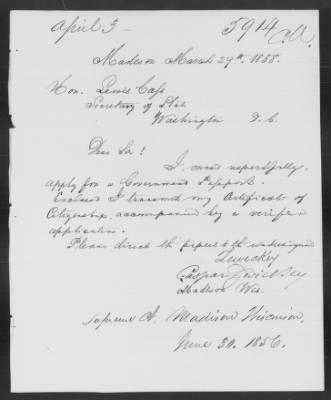 April 3 - 5914
Madison March 29th, 1858.
Hon. Lewis Cass
Secretary of State
Washington D. C.
Dear Sir!
I most respectfully
apply for a Government Passport.
Enclosed I transmit my Certificate of
Citizenship, accompanied by a
application.
Please direct the papers to the undersigned
Caspar Zwickey
Madison Wis.
Supreme Ct. Madison Wisconsin,
June 30. 1856.